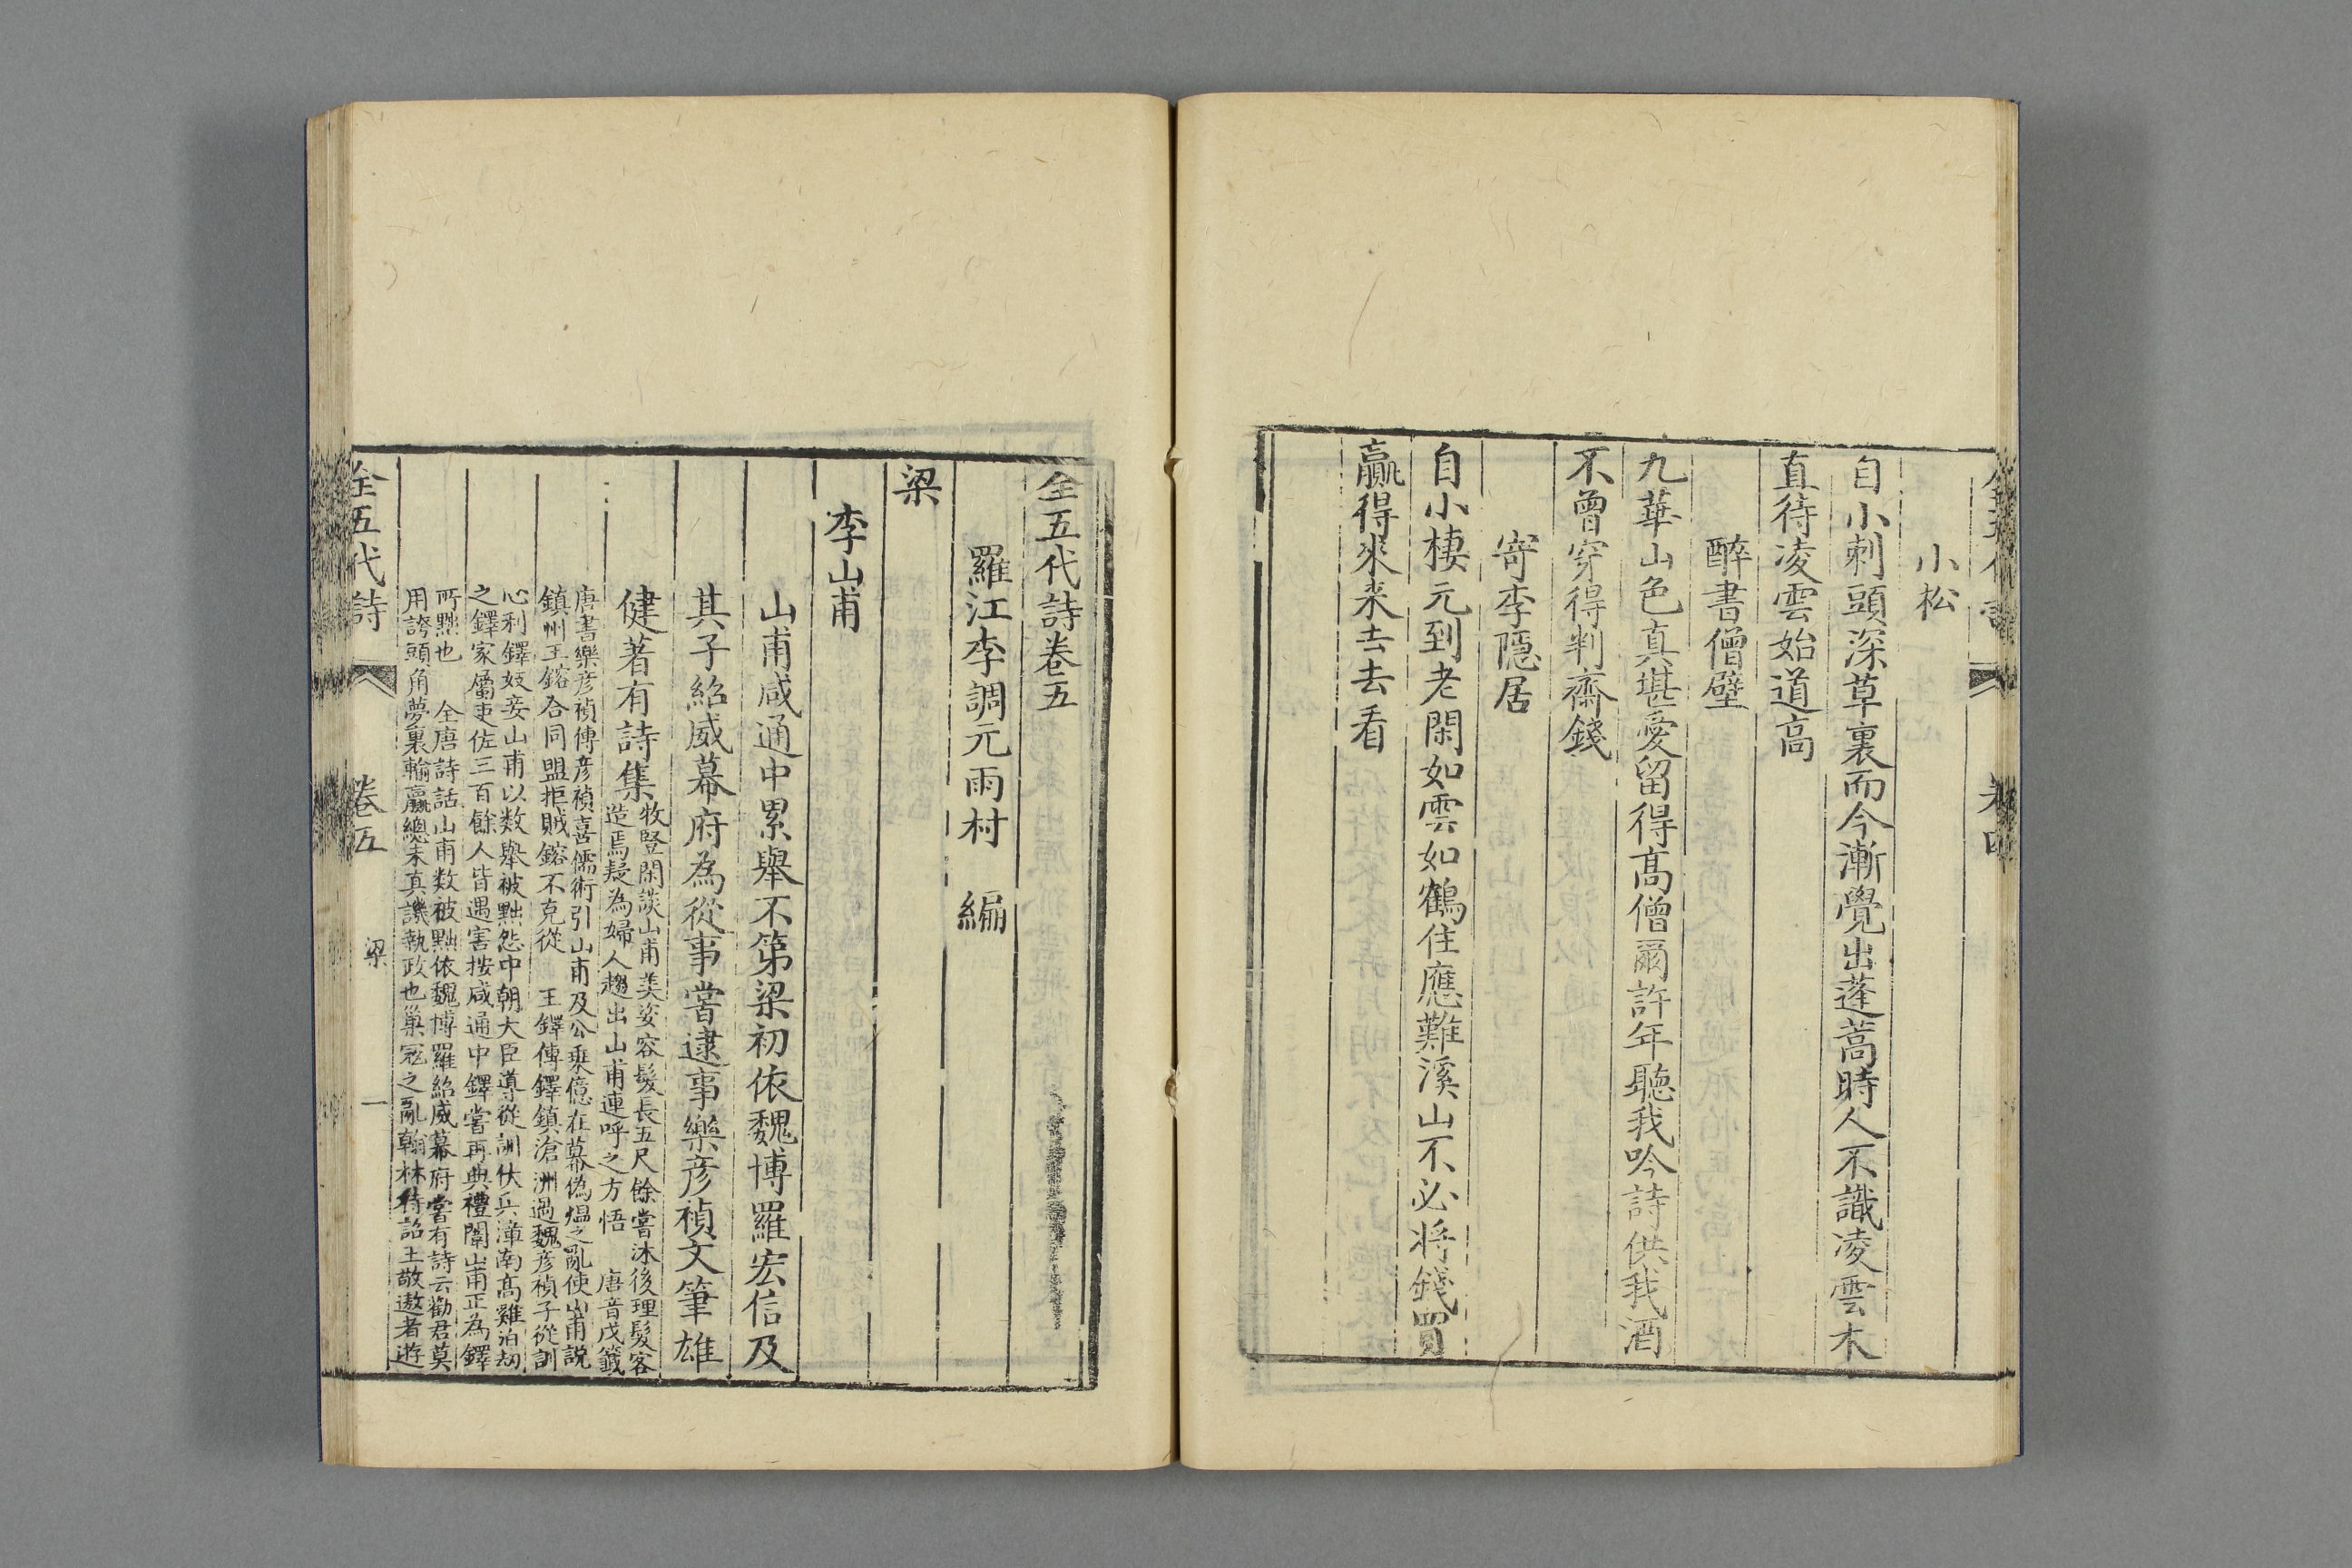 小松
自小刺頭深草裏而今漸覺出蓬蒿時人不識凌雲木
直待凌雲始道高
醉書僧壁
九華山色真堪愛留得高僧爾許年聽我吟詩供我酒
不曾穿得判齋錢
寄李隱居
自小棲元到老閑如雲如鶴住應難溪山不必將錢買
贏得來来去去看
全五代詩卷五
羅江李調元雨村 編
梁
李山甫
山甫咸通中累舉不第梁初依魏博羅宏信及
其子紹威幕府為從事嘗逮事樂彥禎文筆雄
健著有詩集
牧豎閑談山甫美姿容髮長五尺餘嘗沐後理髮客
造焉疑為婦人趨出山甫連呼之方悟 唐音戊籤
唐書樂彥禎傳彥禎喜儒術引山甫及公乘億在幕偽煴之亂使山甫説
鎮州王鎔合同盟拒賊鎔不克從 王鐸傳鐸鎮滄洲過魏彥禎子從訓
心利鐸妓妾山甫以數舉被黜怨中朝大臣導從訓伏兵漳南高雞泊刼
之鐸家屬吏佐三百餘人皆遇害按咸通中鐸嘗再典禮闈山甫正為鐸
所黜也 全唐詩話山甫数被黜依魏博羅紹威幕府嘗有詩云勸君莫
用誇頭角夢裏輸贏總未真譏執政也巢冦之亂翰林待詔王敬遨者遊
全五代詩 卷五 梁 一